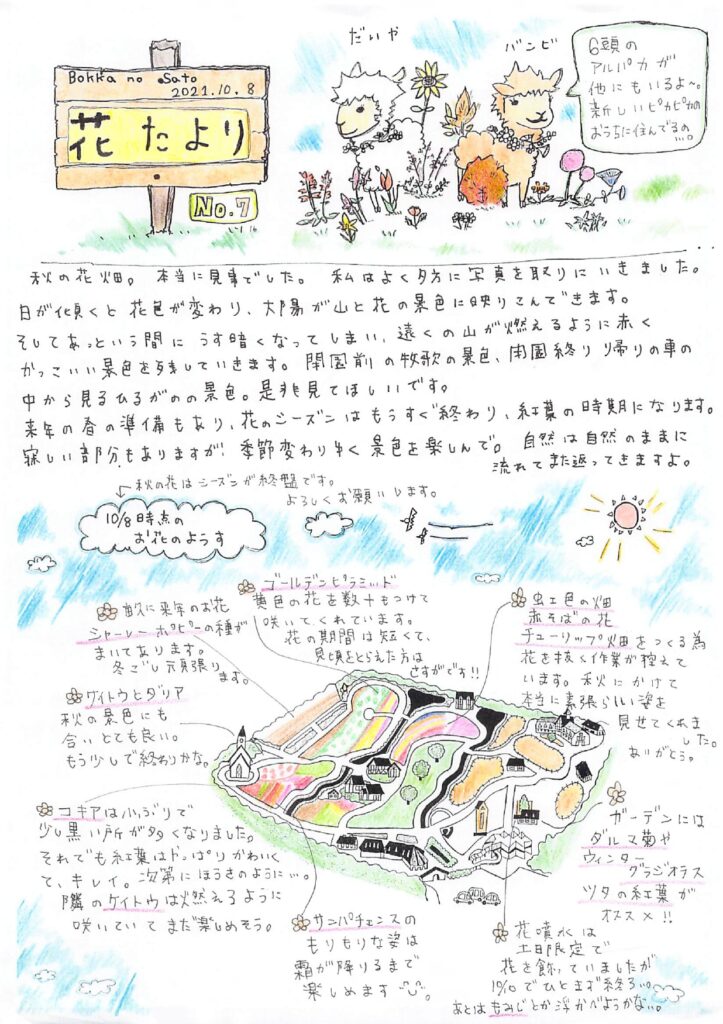 Bokka no Sato
2021.10.8
花たより
No.7
だいや
バンビ
6頭の
アルパカが
他にもいるよ〜。
新しいピカピカの
おうちに住んでるの。
秋の花畑。本当に見事でした。私はよく夕方に写真を取りにいきました。
日が傾くと花色が変わり、太陽が山と花の景色に映りこんできます。
そしてあっという間にうす暗くなってしまい、遠くの山が燃えるように赤く
かっこいい景色を残していきます。開園前の牧歌の景色、閉園終り帰りの車の
中から見るひるがのの景色。是非見てほしいです。
来年の春の準備もあり、花のシーズンはもうすぐ終わり、紅葉の時期になります。
寂しい部分もありますが!季節変わりゆく景色を楽しんで。自然は自然のままに
流れてまた返ってきますよ。
秋の花はシーズンが終盤です。
よろしくお願いします。
10/8時点の
お花のようす
畝に来年のお花
シャーレーポピーの種が
まいてあります。
冬ごし頑張り
ます。
ゴールデンピラミッド
黄色の花を数十もつけて
咲いてくれています。
花の期間は短くて、
見頃をとらえた方は
さすがです!!
虹色の畑
赤そばの花
チューリップ畑をつくる為
花を抜く作業が控えて
います。秋にかけて
本当に素張らしい姿を
見せてくれま
した。
ありがとう。
ケイトウとダリア
秋の景色にも
合いとても良い。
もう少しで終わりかな。
コキアは小ぶりで
少し黒い所が多くなりました。
それでも紅葉はドっぱりかわいく
て、キレイ。次第にほうきのように…。
隣のケイトウは燃えるように
咲いていてまだ楽しめそう。
サンパチェンスの
もりもりな姿は
霜が降りるまで
楽しめます。
花噴水は
土日限定で
花を飾っていましたが
10/10でひとまず終了…。
あとはもみじとか浮かべようかな…。
ガーデンには
ダルマ菊や
ウィンター
グラジオラス
ツタの紅葉が
オススメ!!